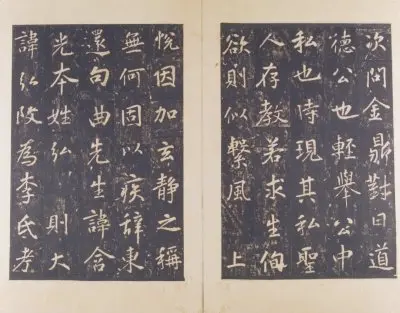 次問金鼎對曰道
德公也輕舉公中
私也時現其私聖
人存教若求生徇
欲則似繫風 上
悅因加玄靜之稱
無何固以疾辭東
還句曲先生諱含
光本姓弘 則大
諱弘改為李氏孝